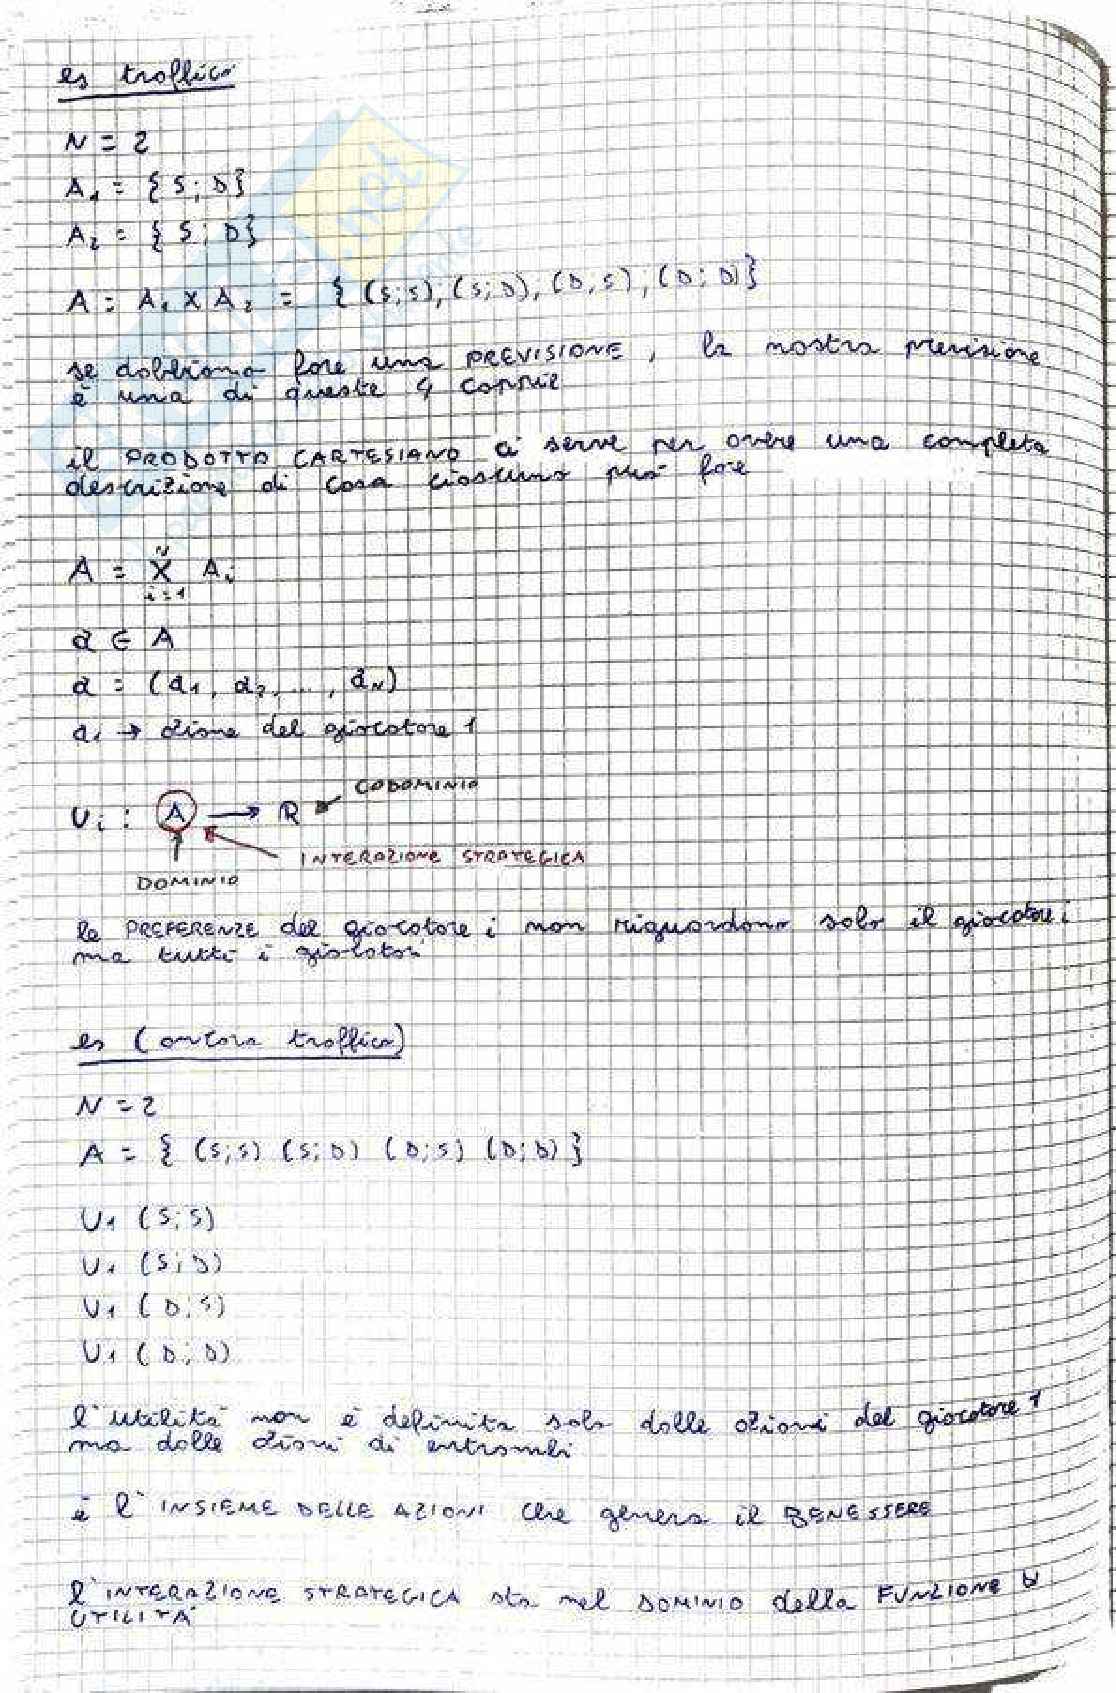 es traffico
N = 2
A₁ = { S ; D }
A₂ = { S ; D }
A = A₁ X A₂ = { (S;S), (S;D), (D;S), (D;D) }
se dobbiamo fare una PREVISIONE, la nostra previsione
è una di queste 4 coppie
il PRODOTTO CARTESIANO ci serve per avere una completa
descrizione di cosa ciascuno può fare
N
A = X Aᵢ
i=1
a ∈ A
a = (a₁, a₂, ..., aN)
a₁ → azione del giocatore 1
CODOMINIO
Uᵢ : A → R
INTERAZIONE STRATEGICA
DOMINIO
le PREFERENZE del giocatore i non riguardano solo il giocatore i
ma tutti i giocatori
es (ancora traffico)
N = 2
A = { (S;S) (S;D) (D;S) (D;D) }
U₁ (S;S)
U₁ (S;D)
U₁ (D;S)
U₁ (D;D)
l'utilità non è definita solo dalle azioni del giocatore 1
ma dalle azioni di entrambi
è l'INSIEME DELLE AZIONI che genera il BENESSERE
l'INTERAZIONE STRATEGICA sta nel DOMINIO della FUNZIONE U
UTILITÀ